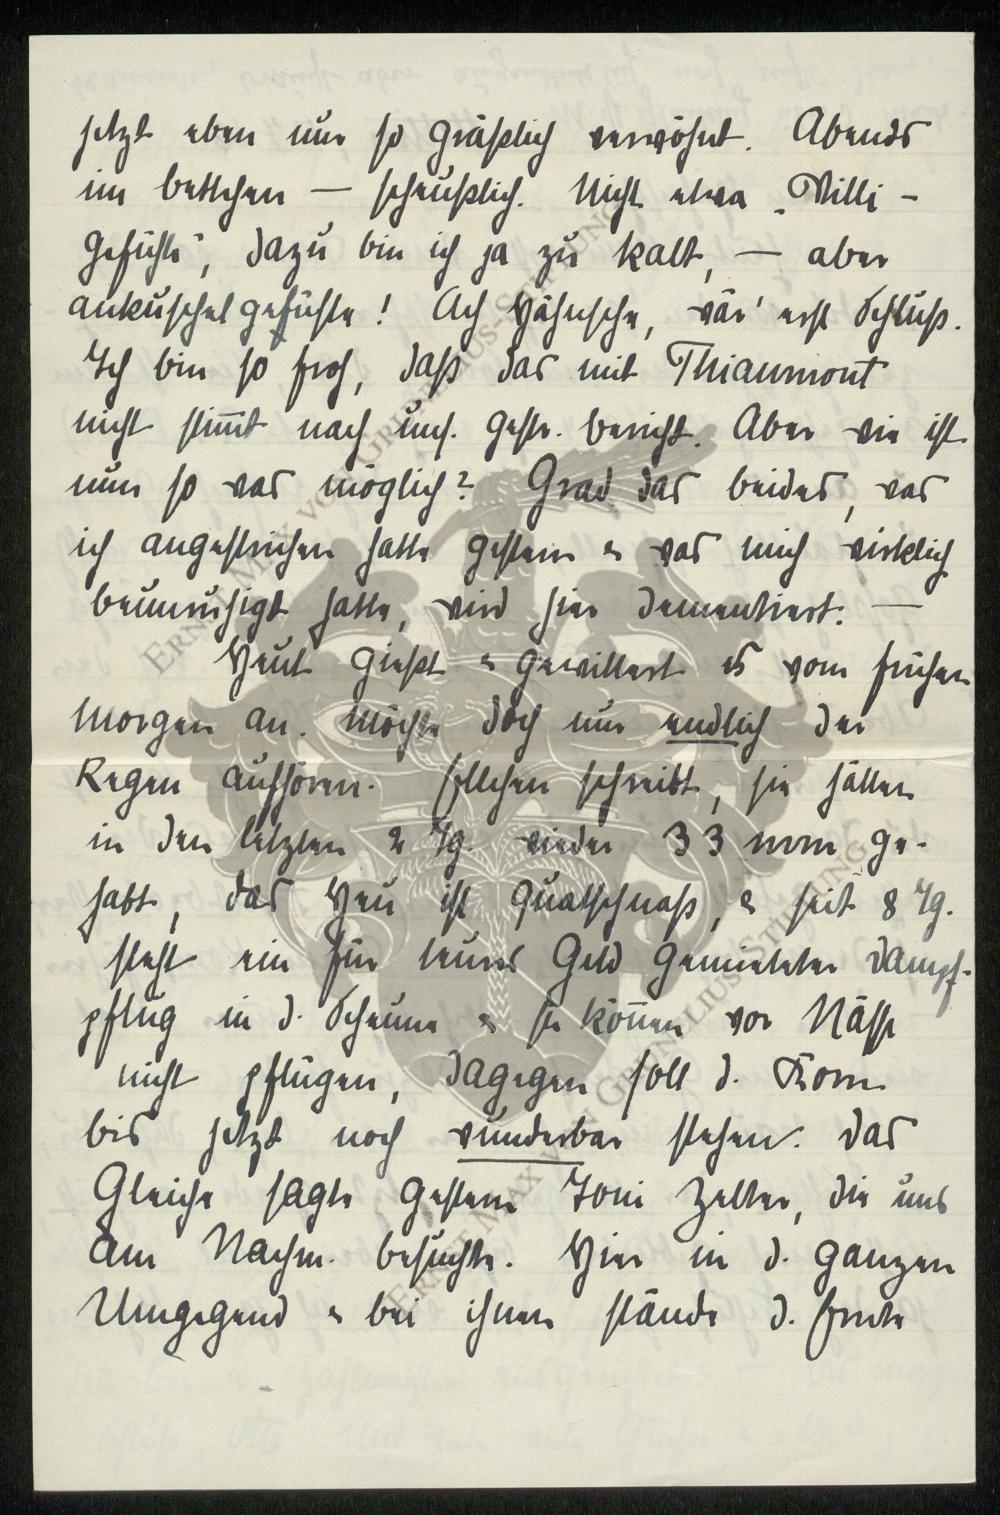 jetzt eben nur so gräßlich verwöhnt. Abends
im bettchen — scheußlich. Nicht etwa „Willi-
gefühle", dazu bin ich ja zu kalt, — aber
ankuschelgefühle! Ach Hähnsche, wär' erst Schluß.
Ich bin so froh, daß das mit Thiaumont
nicht stim̅t nach uns. gestr. bericht. Aber wie ist
nun so was möglich? Grad das beides, was
ich angestrichen hatte gestern & was mich wirklich
beunruhigt hatte, wird hier dementiert. —
Heut gießt & gewittert es vom frühen
Morgen an. Möchte doch nur endlich der
Regen aufhören. Ellchen schreibt, sie hätten
in den letzten 2 Tg. wieder 33 mm ge-
habt, das Heu ist quatschnaß, & seit 8 Tg.
steht ein für teures Geld gemieteter Dampf-
pflug in d. Scheune & sie kön̅en vor Nässe
nicht pflügen, dagegen soll d. Korn
bis jetzt noch wunderbar stehen. Das
Gleiche sagte gestern Toni Zelter, die uns
am Nachm. besuchte. Hier in d. ganzen
Umgegend & bei ihnen stände d. Ernte
Ernst Max von Grunelius-Stiftung
Ernst Max von Grunelius-Stiftung